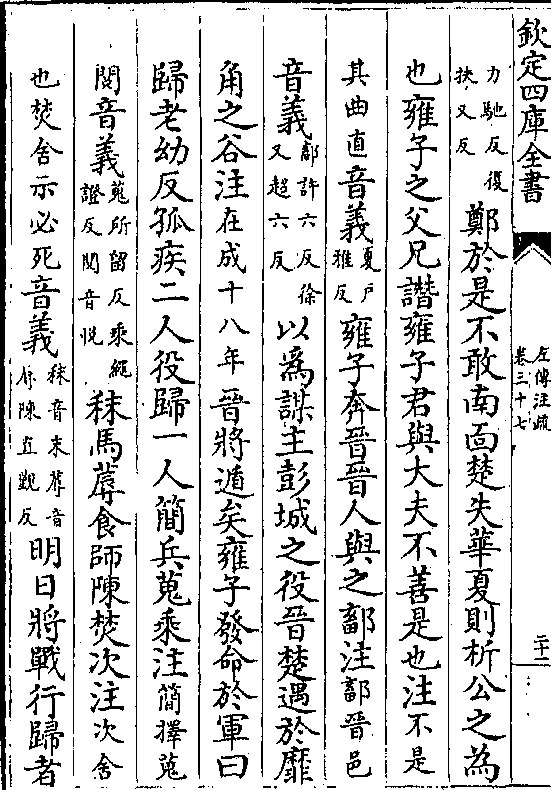 欽定四庫全書
左傳注疏
卷三十七
二十一
力馳反復
扶又反
鄭於是不敢南面楚失華夏則析公之為
也雍子之父兄譖雍子君與大夫不善是也注不是
其曲直音義夏戶
雅反
雍子奔晉晉人與之鄐注鄐晉邑
音義鄐許六反徐
又超六反
以為謀主彭城之役晉楚遇於靡
角之谷注在成十八年晉將遁矣雍子發命於軍曰
歸老幼反孤疾二人役歸一人簡兵蒐乘注簡擇蒐
閱音義蒐所留反乘繩
證反閱音悅
秣馬蓐食師陳焚次注次舍
也焚舍示必死音義秣音末蓐音
辱陳直觀反
明日將戰行歸者